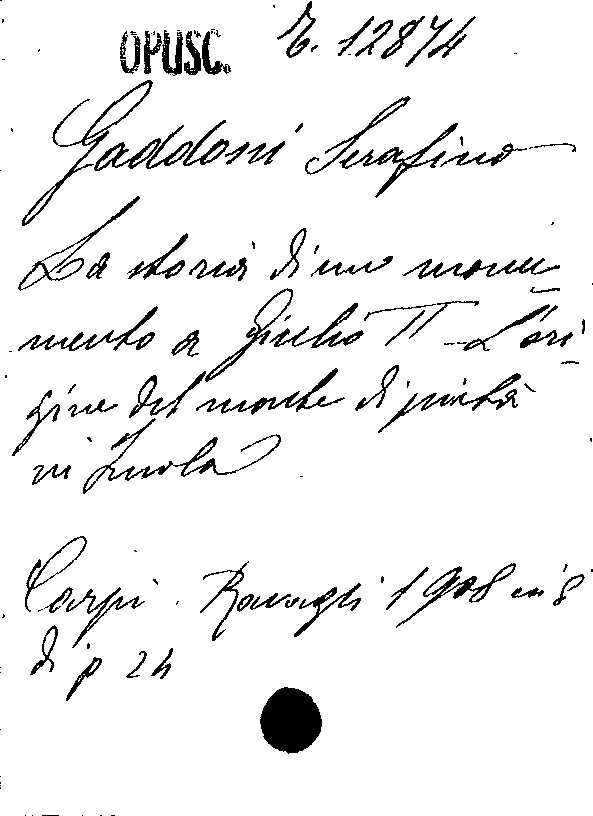 OPUSC. E. 12874
Gaddoni Serafino
La storia di un monu
mento a Giulio II - L'ori
gine del monte di pietà
in Imola
Carpi. Ravagli 1908 in 8
di p 24